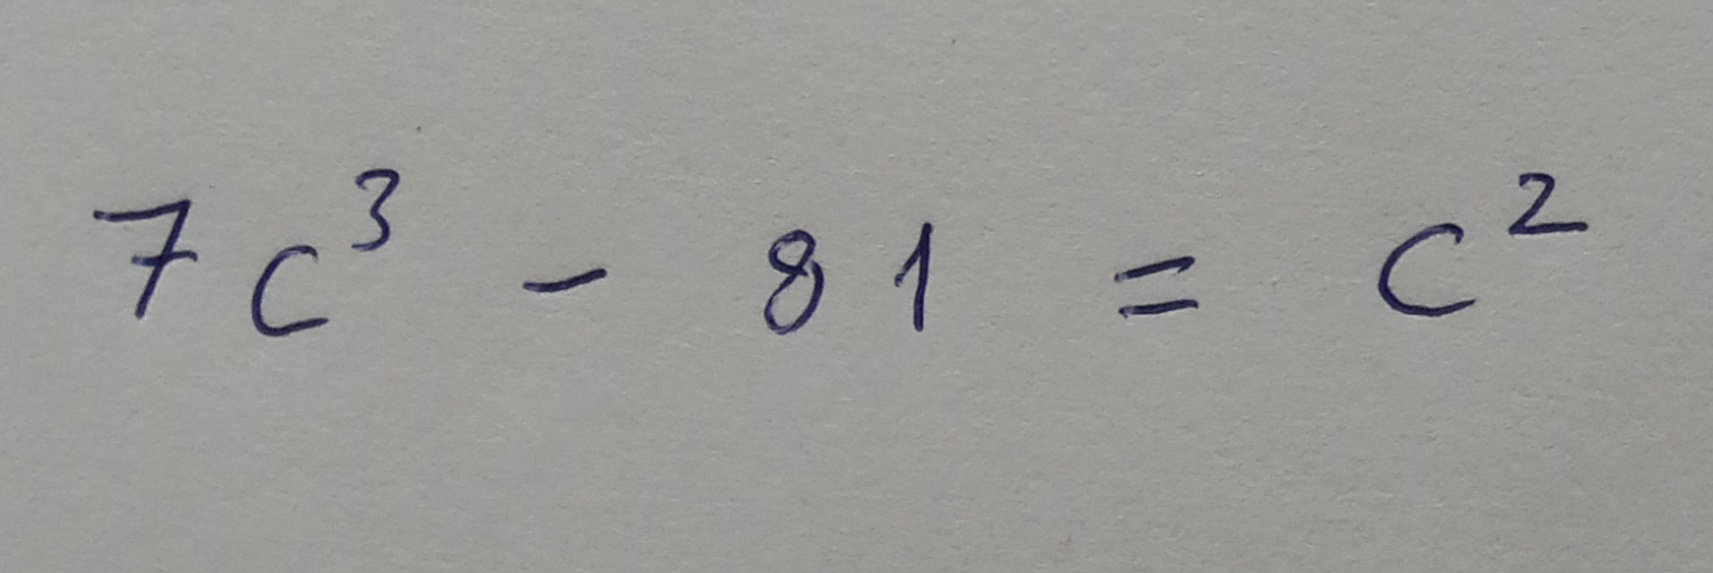 7c³ - 81 = c²